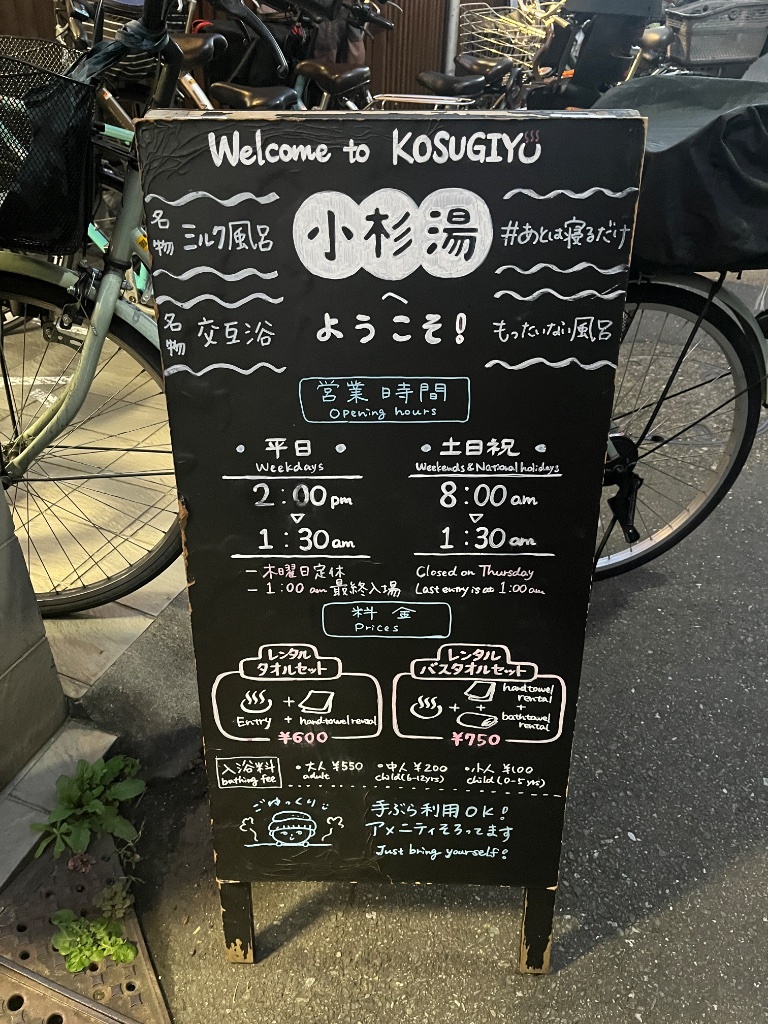 Welcome to KOSUGIYU
名物 ミルク風呂
小杉湯
#あとは寝るだけ
名物 交互浴
ようこそ!
もったいない風呂
営業時間
Opening hours
・平日・
Weekdays
2:00pm
▽
1:30am
・土日祝・
Weekends & National holidays
8:00am
▽
1:30am
- 木曜日定休
- 1:00am 最終入場
Closed on Thursday
Last entry is at 1:00am
料金
Prices
レンタル
タオルセット
+
Entry + hand towel rental
¥600
レンタル
バスタオルセット
+ +
hand towel
rental
+
bath towel
rental
¥750
入浴料
bathing fee
・大人 ¥550
adult
・中人 ¥200
child (6-12yrs)
・小人 ¥100
child (0-5 yrs)
ごゆっくり
手ぶら利用OK!
アメニティそろってます
Just bring yourself!